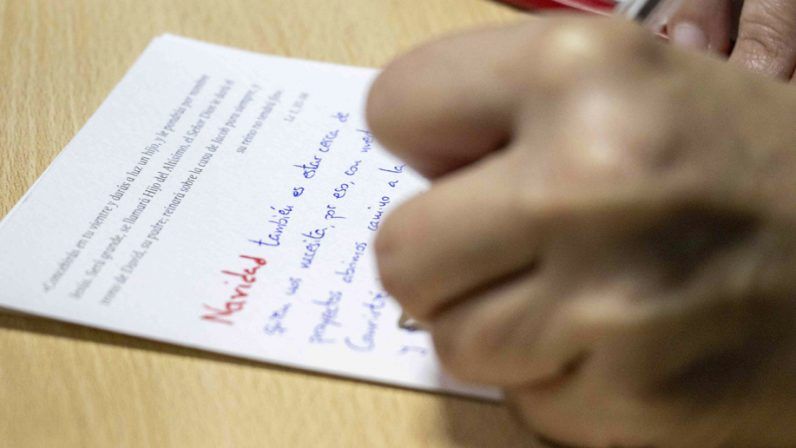 «Concebirás en tu vientre y darás a luz un hijo, y le pondrás por nombre
Jesús. Será grande, se llamará Hijo del Altísimo, el Señor Dios le dará el
trono de David, su padre; reinará sobre la casa de Jacob para siempre, y
su reino no tendrá fin».
Lc 1, 31-33
Navidad también es estar cerca de
nos necesita, por eso, con
proyectos abrimos camino a la
y